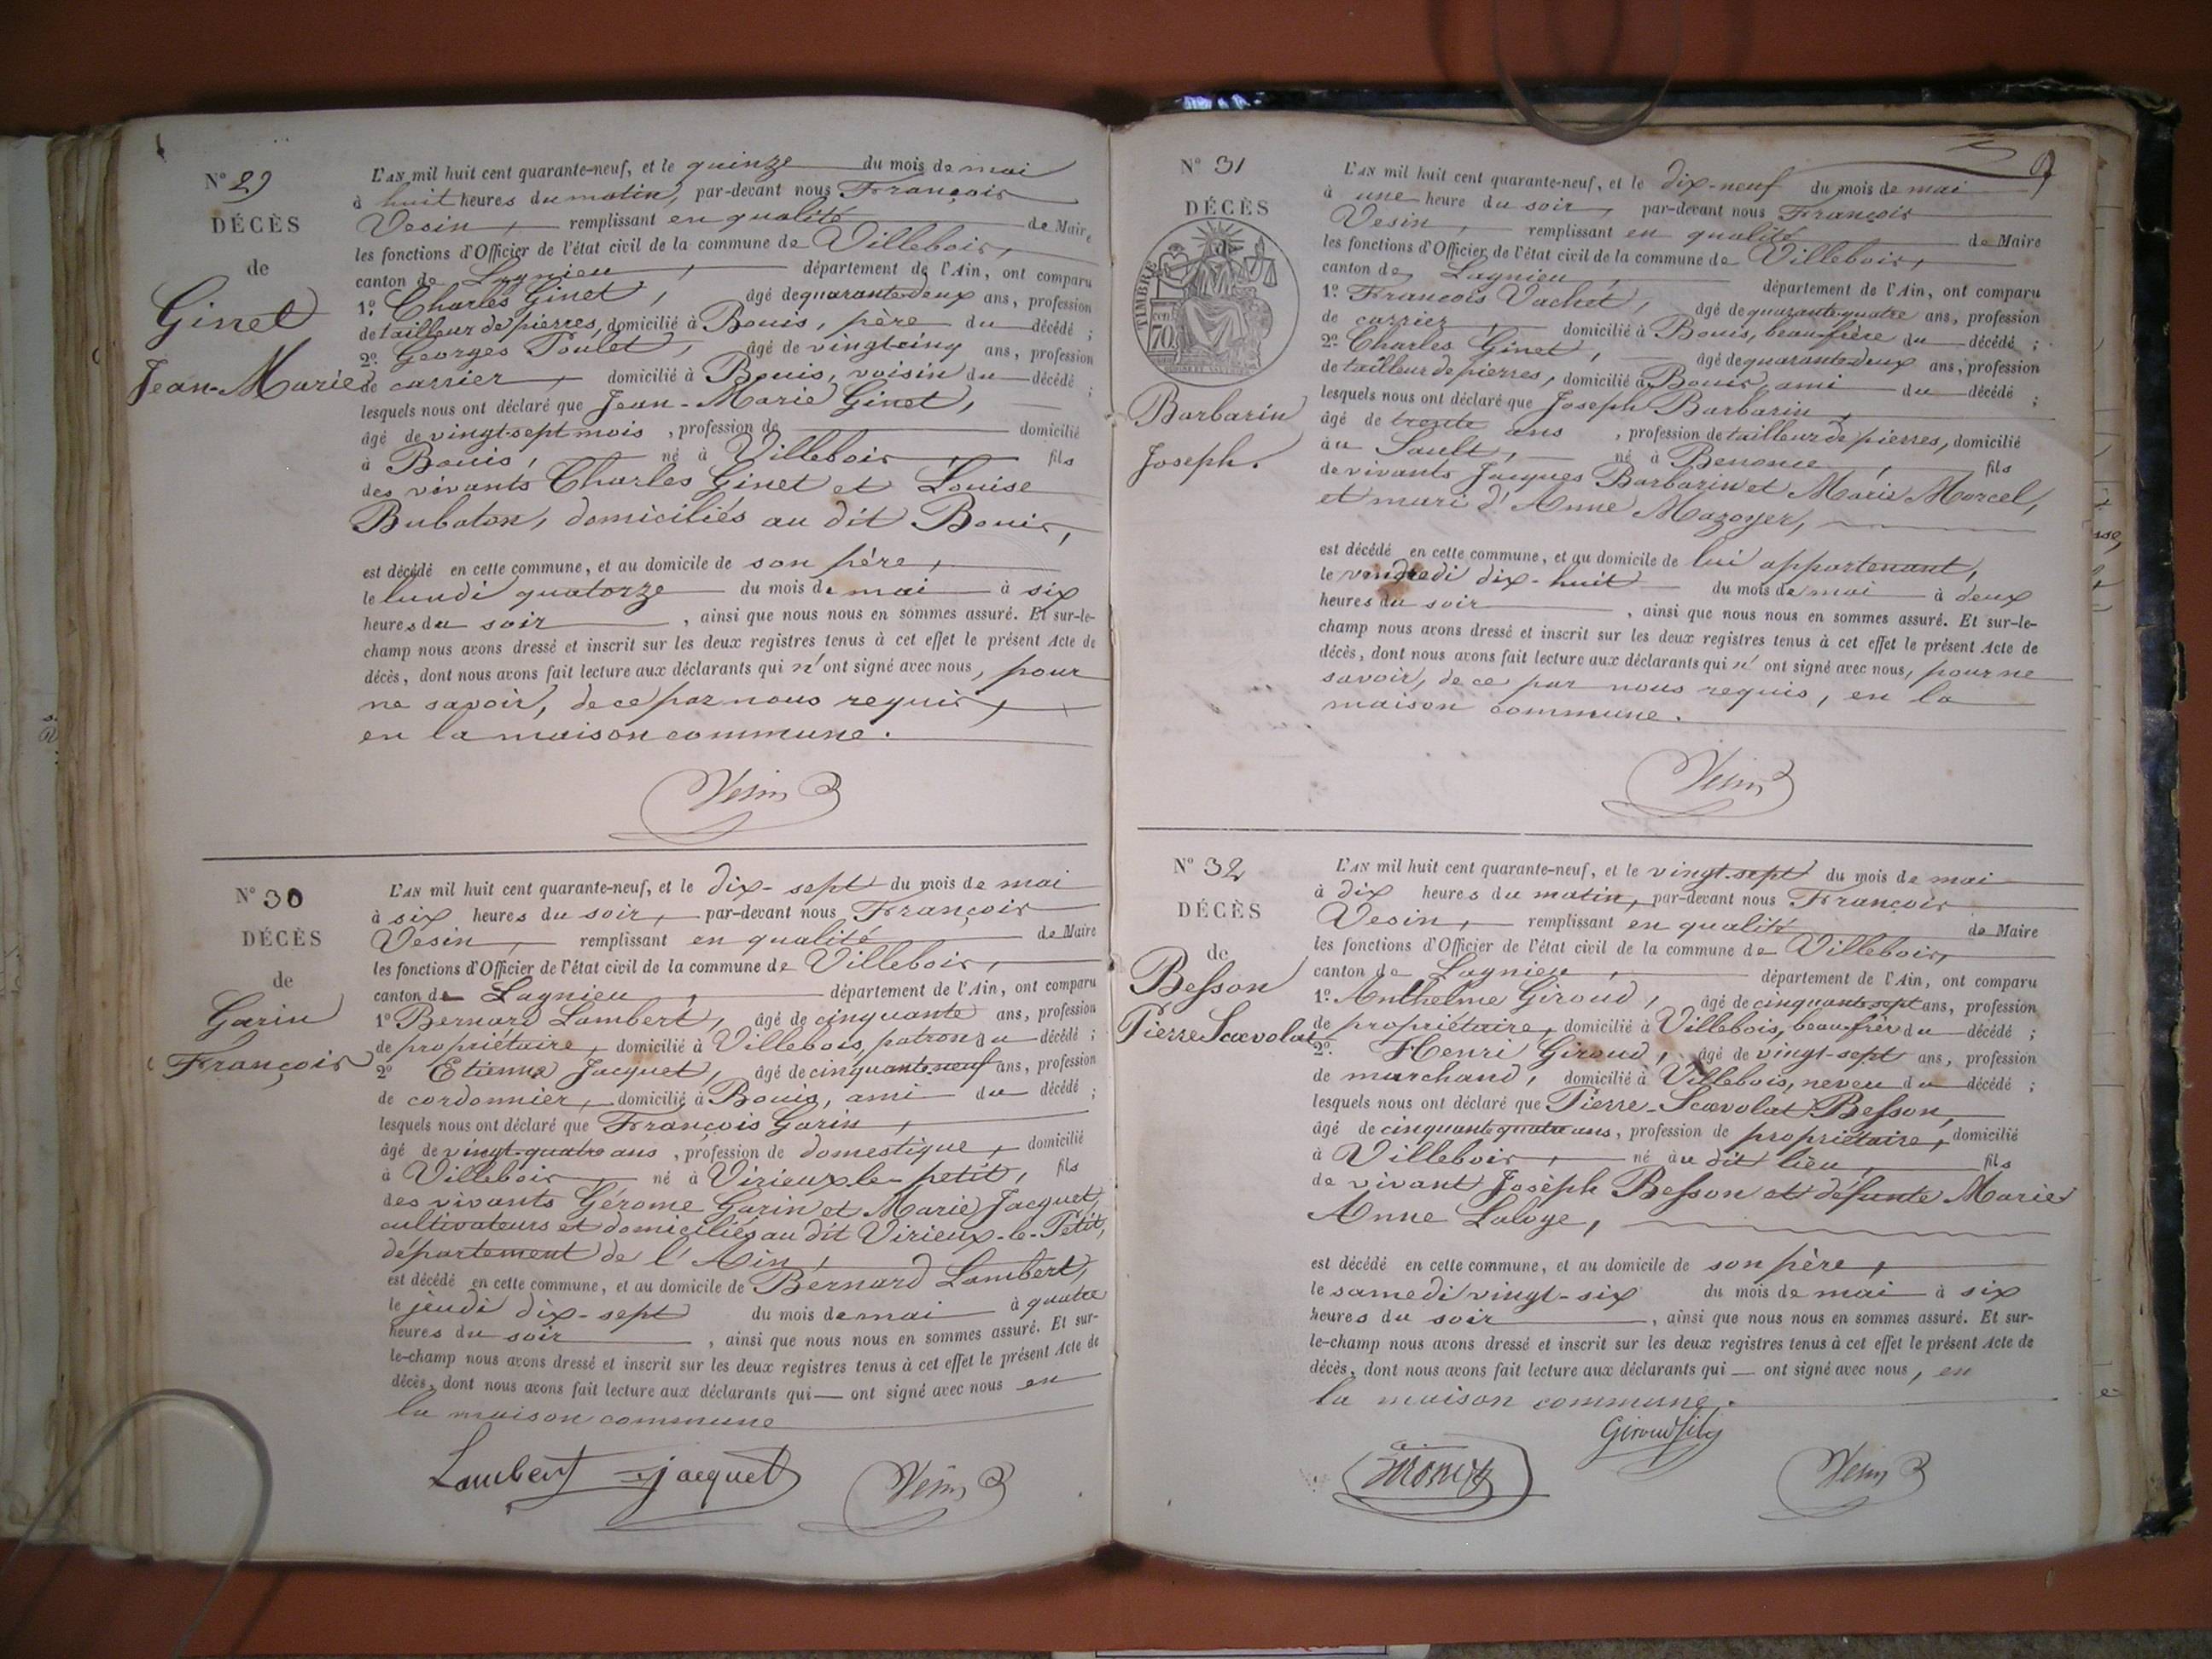 N° 29
DÉCÈS
de
Ginet
Jean-Marie
L'AN mil huit cent quarante-neuf, et le quinze du mois de mai
à huit heures du matin, par-devant nous François
Vesin, remplissant en qualité de Maire
les fonctions d'Officier de l'état civil de la commune de Villebois,
canton de Lagnieu, département de l'Ain, ont comparu
1° Charles Ginet, âgé de quarante-deux ans, profession
de tailleur de pierres, domicilié à Bouis, père du décédé ;
2° Georges Poulet, âgé de vingt-cinq ans, profession
de carrier, domicilié à Bouis, voisin du décédé ;
lesquels nous ont déclaré que Jean-Marie Ginet,
âgé de vingt-sept mois, profession de domicilié
à Bouis, né à Villebois, fils
des vivants Charles Ginet et Louise
Bubaton, domiciliés au dit Bouis,
est décédé en cette commune, et au domicile de son père,
le lundi quatorze du mois de mai à six
heures du soir, ainsi que nous nous en sommes assuré. Et sur-le-
champ nous avons dressé et inscrit sur les deux registres tenus à cet effet le présent Acte de
décès, dont nous avons fait lecture aux déclarants qui n'ont signé avec nous, pour
ne savoir, de ce par nous requis,
en la maison commune.
Vesin
N° 30
DÉCÈS
de
Garin
François
L'AN mil huit cent quarante-neuf, et le dix-sept du mois de mai
à six heures du soir, par-devant nous François
Vesin, remplissant en qualité de Maire
les fonctions d'Officier de l'état civil de la commune de Villebois,
canton de Lagnieu, département de l'Ain, ont comparu
1° Bernard Lambert, âgé de cinquante ans, profession
de propriétaire, domicilié à Villebois, patron du décédé ;
2° Etienne Jacquet, âgé de cinquante-neuf ans, profession
de cordonnier, domicilié à Bouis, ami du décédé ;
lesquels nous ont déclaré que François Garin,
âgé de vingt-quatre ans, profession de domestique, domicilié
à Villebois, né à Virieux-le-petit, fils
des vivants Gérome Garin et Marie Jacquet,
cultivateurs et domiciliés au dit Virieux-le-Petit,
département de l'Ain,
est décédé en cette commune, et au domicile de Bernard Lambert,
le jeudi dix-sept du mois de mai à quatre
heures du soir, ainsi que nous nous en sommes assuré. Et sur-
le-champ nous avons dressé et inscrit sur les deux registres tenus à cet effet le présent Acte de
décès, dont nous avons fait lecture aux déclarants qui — ont signé avec nous en
la maison commune
Lambert Jacquet Vesin
N° 31
DÉCÈS
de
TIMBRE
70
Barbarin
Joseph.
L'AN mil huit cent quarante-neuf, et le dix-neuf du mois de mai
à une heure du soir, par-devant nous François
Vesin, remplissant en qualité de Maire
les fonctions d'Officier de l'état civil de la commune de Villebois,
canton de Lagnieu, département de l'Ain, ont comparu
1° François Vachet, âgé de quarante-quatre ans, profession
de carrier, domicilié à Bouis, beau-frère du décédé ;
2° Charles Ginet, âgé de quarante-deux ans, profession
de tailleur de pierres, domicilié à Bouis, ami du décédé ;
lesquels nous ont déclaré que Joseph Barbarin,
âgé de trente ans, profession de tailleur de pierres, domicilié
au Sault, né à Benonce, fils
de vivants Jacques Barbarin et Marie Marcel,
et mari d'Anne Mazoyer,
est décédé en cette commune, et au domicile de lui appartenant,
le vendredi dix-huit du mois de mai à deux
heures du soir, ainsi que nous nous en sommes assuré. Et sur-le-
champ nous avons dressé et inscrit sur les deux registres tenus à cet effet le présent Acte de
décès, dont nous avons fait lecture aux déclarants qui n'ont signé avec nous, pour ne
savoir, de ce par nous requis, en la
maison commune.
Vesin
N° 32
DÉCÈS
de
Besson
Pierre Scævolat
L'AN mil huit cent quarante-neuf, et le vingt-sept du mois de mai
à dix heures du matin, par-devant nous François
Vesin, remplissant en qualité de Maire
les fonctions d'Officier de l'état civil de la commune de Villebois,
canton de Lagnieu, département de l'Ain, ont comparu
1° Anthelme Giroud, âgé de cinquante-sept ans, profession
de propriétaire, domicilié à Villebois, beau-frère du décédé ;
2° Henri Giroud, âgé de vingt-sept ans, profession
de marchand, domicilié à Villebois, neveu du décédé ;
lesquels nous ont déclaré que Pierre-Scævolat Besson,
âgé de cinquante-quatre ans, profession de propriétaire, domicilié
à Villebois, né au dit lieu, fils
de vivant Josèph Besson et défunte Marie
Anne Laloge,
est décédé en cette commune, et au domicile de son père,
le samedi vingt-six du mois de mai à six
heures du soir, ainsi que nous nous en sommes assuré. Et sur-
le-champ nous avons dressé et inscrit sur les deux registres tenus à cet effet le présent Acte de
décès, dont nous avons fait lecture aux déclarants qui — ont signé avec nous, en
la maison commune.
Giroud fils
Vesin